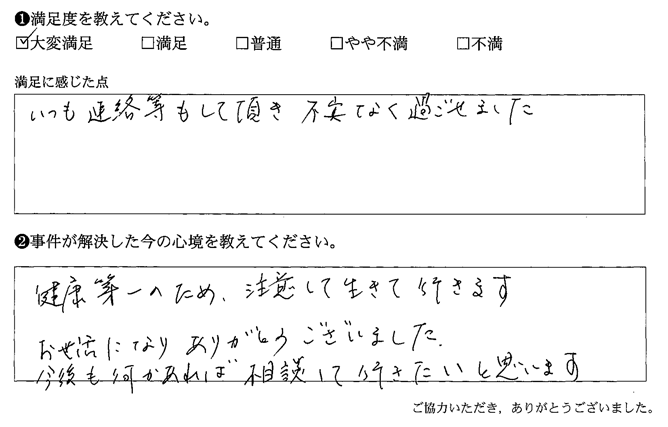 ❶満足度を教えてください。
☑大変満足 □満足 □普通 □やや不満 □不満
満足に感じた点
いつも連絡等もして頂き 不安なく過ごせました
❷事件が解決した今の心境を教えてください。
健康第一のため、注意して生きて行きます
お世話になりありがとうございました.
今後も何かあれば相談して行きたいと思います
ご協力いただき，ありがとうございました。